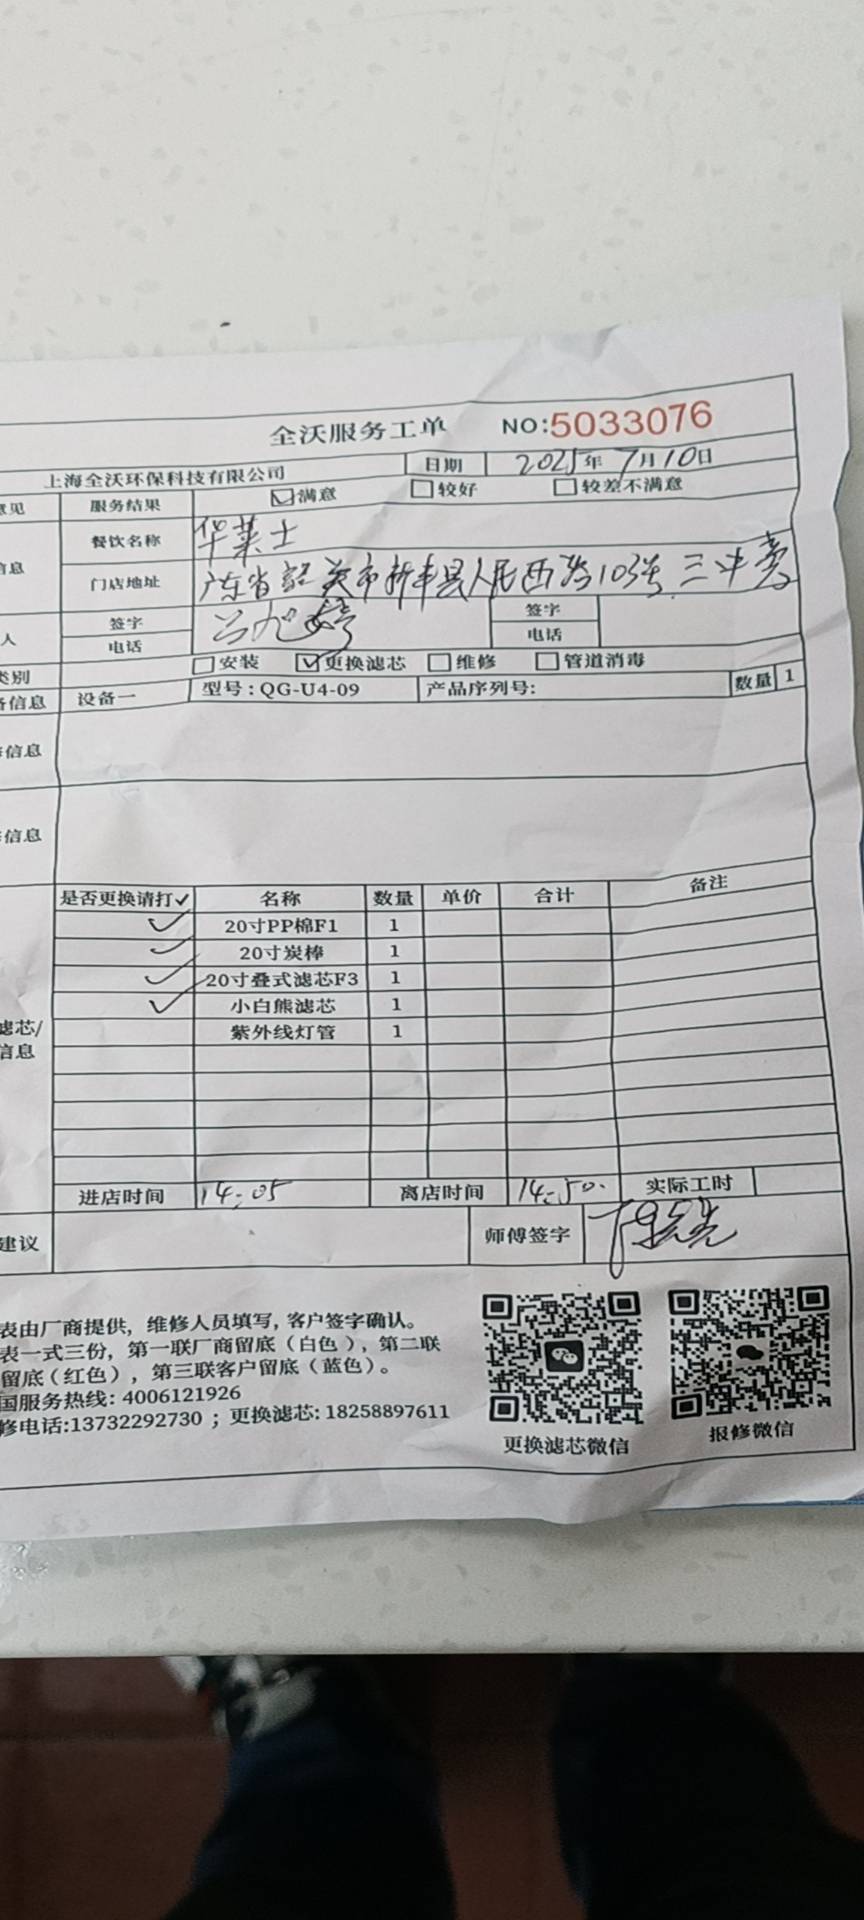 全沃服务工单 NO:5033076
上海全沃环保科技有限公司 日期 2025年7月10日
意见 服务结果 满意 较好 较差不满意
信息 餐饮名称 华莱士
门店地址 广东省韶关市新丰县人民西路103号
人 签字 签字
电话 电话
类别 安装 更换滤芯 维修 管道消毒
备信息 设备一 型号：QG-U4-09 产品序列号: 数量 1
信息
信息
是否更换请打✓ 名称 数量 单价 合计 备注
✓ 20寸PP棉F1 1
✓ 20寸炭棒 1
✓ 20寸叠式滤芯F3 1
✓ 小白熊滤芯 1
滤芯/ 紫外线灯管 1
信息
进店时间 14:05 离店时间 14:50 实际工时
建议 师傅签字
表由厂商提供，维修人员填写，客户签字确认。
表一式三份，第一联厂商留底（白色），第二联
留底（红色），第三联客户留底（蓝色）。
国服务热线: 4006121926
修电话:13732292730 ；更换滤芯: 18258897611
更换滤芯微信 报修微信